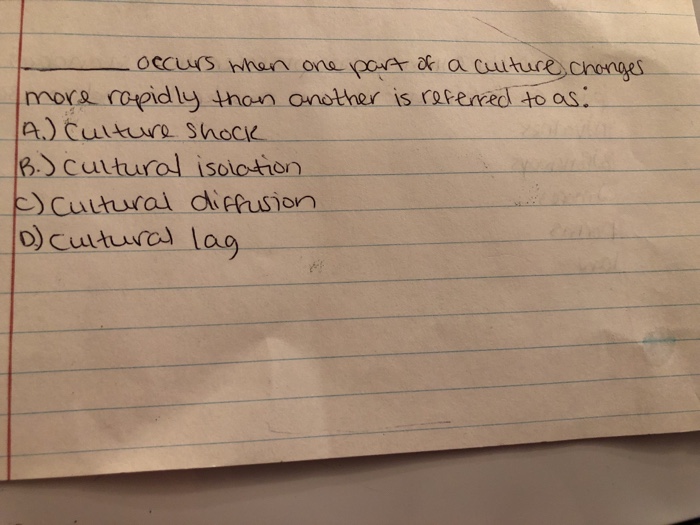 _______ occurs when one part of a culture changes
more rapidly than another is referred to as:
A.) Culture shock
B.) Cultural isolation
C) Cultural diffusion
D) Cultural lag